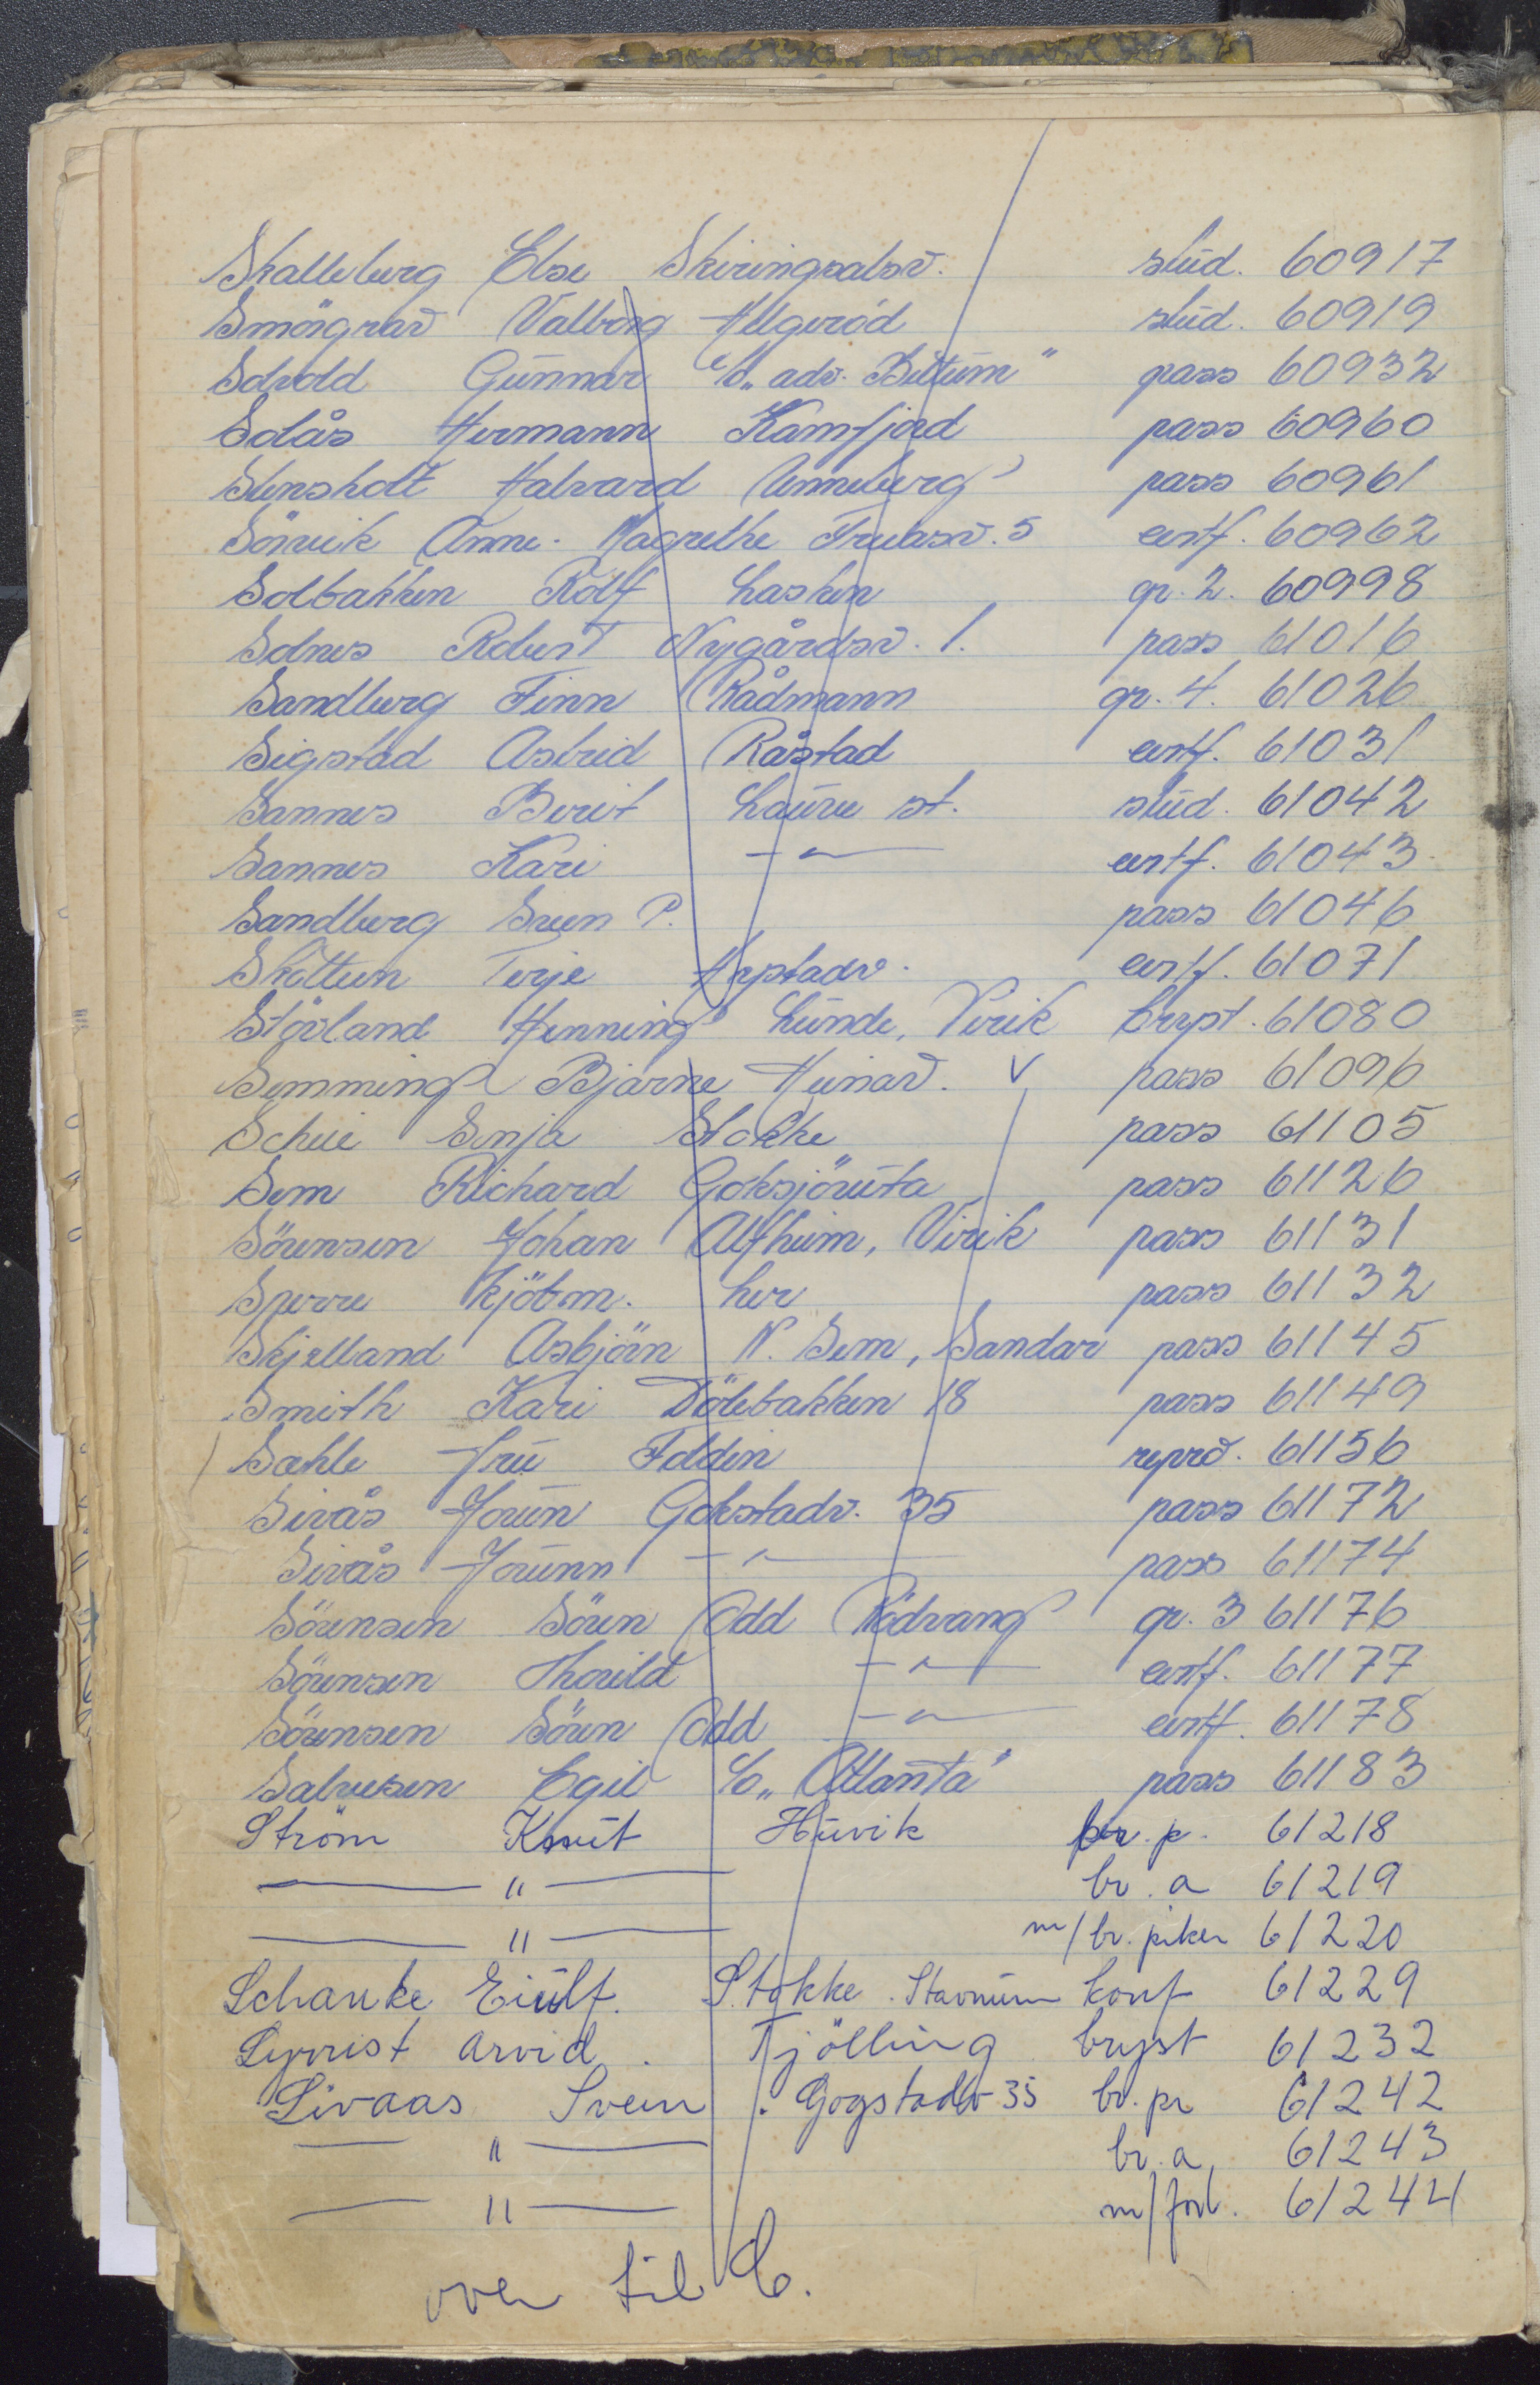 Skalleberg Else Skiringsalsv. stud. 60917
Smörgrav Valborg Helgeröd stud. 60919
Solvold Gunnar c/o „adv. Bettum" pass 60932
Solås Hermann Kamfjord pass 60960
Stensholt Halvard Unneberg pass 60961
Sörvik Anne-Magrethe Truberv. 5 eastf. 60962
Solbakken Rolf Lasken gr. 2. 60998
Solnes Robert Nygårdsv. 1. pass 61016
Sandberg Finn Rådmann gr. 4. 61026
Sigstad Astrid Råstad eastf. 61031
Sannes Berit Lauve st. stud. 61042
Sannes Kari —"— eastf. 61043
Sandberg Sven P. pass 61046
Skottun Terje Hystadv. eastf. 61071
Stövland Henning Lunde, Virik bryst. 61080
Semming Bjarne Heinav. V pass 61096
Scheie Sonja Stokke pass 61105
Sem Richard Goksjöruta pass 61126
Sörensen Johan Alfheim, Virik pass 61131
Sperre kjöbm. her pass 61132
Skjelland Asbjörn N. Sem, Sandar pass 61145
Smith Kari Dölebakken 18 pass 61149
Sæhle fru Folden reprod. 61156
Sivås Jorun Gokstadv. 35 pass 61172
Sivås Jorunn —"— pass 61174
Sörensen Sören Odd Rödvang gr. 3 61176
Sörensen Thorild —"— eastf. 61177
Sörensen Sören Odd —"— eastf. 61178
Salvesen Egil c/o „Atlanta" pass 61183
Ström Knut Huvik br. p. 61218
—"— br. a 61219
—"— m/br. piken 61220
Schanke Eiulf. Stokke. Stavnum konf 61229
Syvrist Arvid. Tjölling bryst 61232
Sivaas Svein. Gogstadv 35 br. pr 61242
—"— br. a. 61243
—"— m/forl. 61244
over til C.